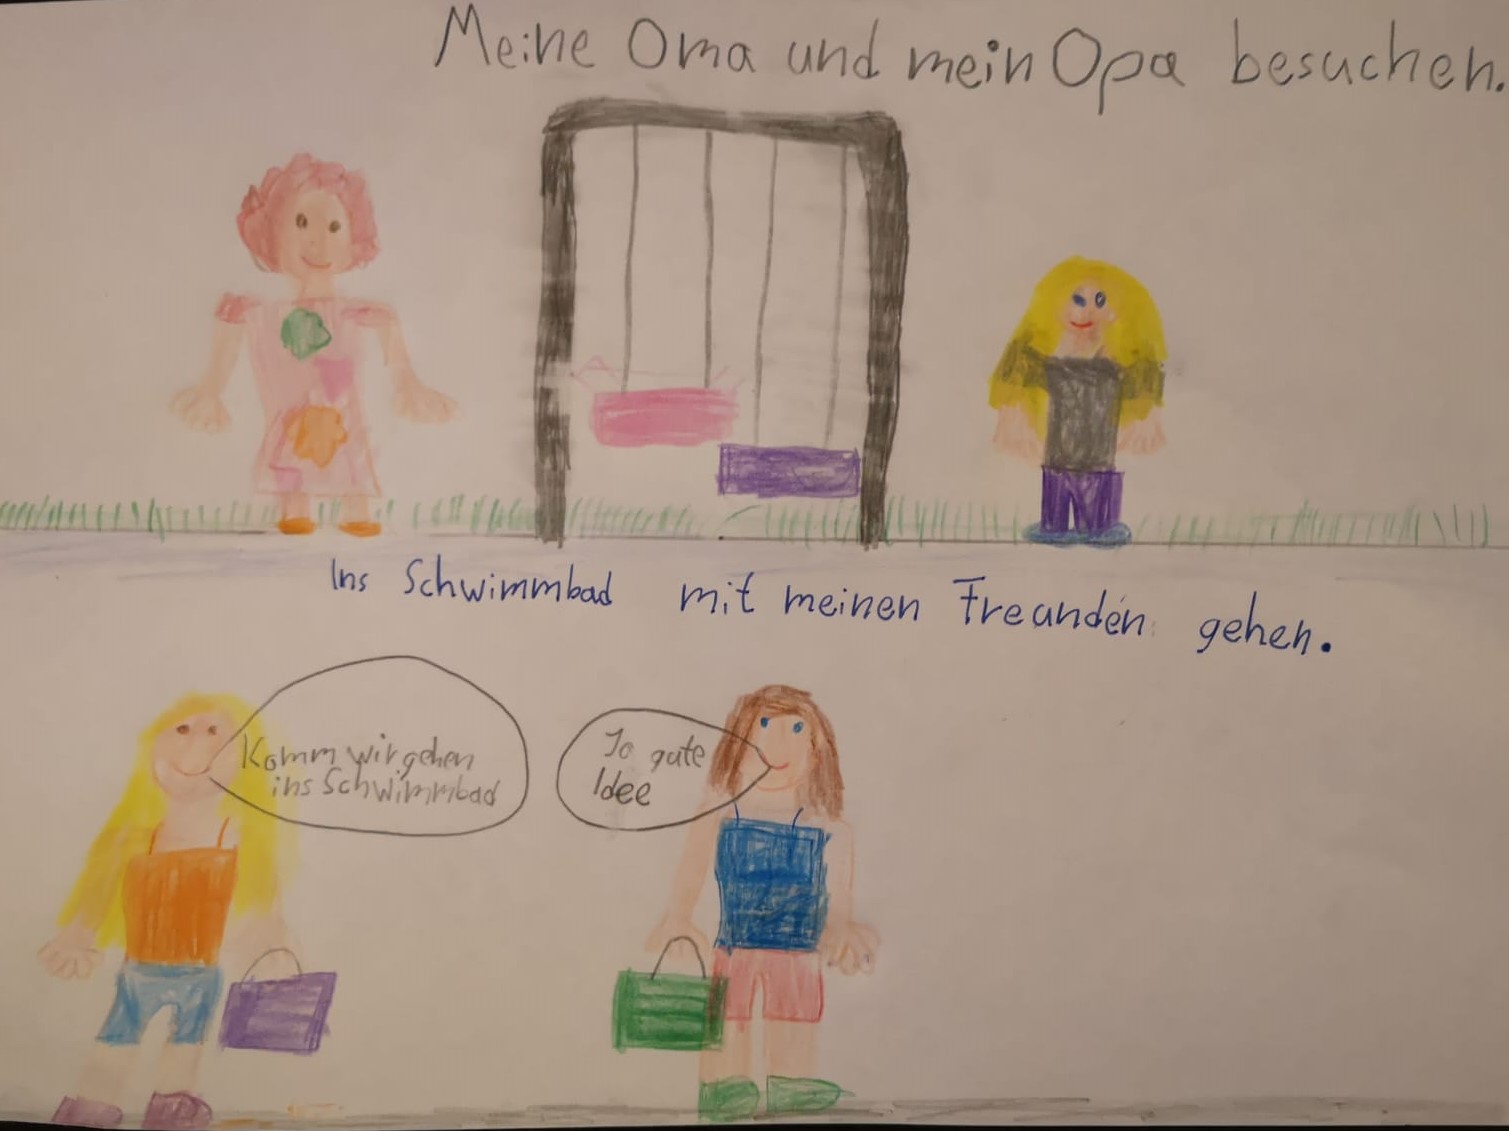 Meine Oma und mein Opa besuchen.
Ins Schwimmbad mit meinen Freunden gehen.
Komm wir gehen
ins Schwimmbad
Ja gute
Idee